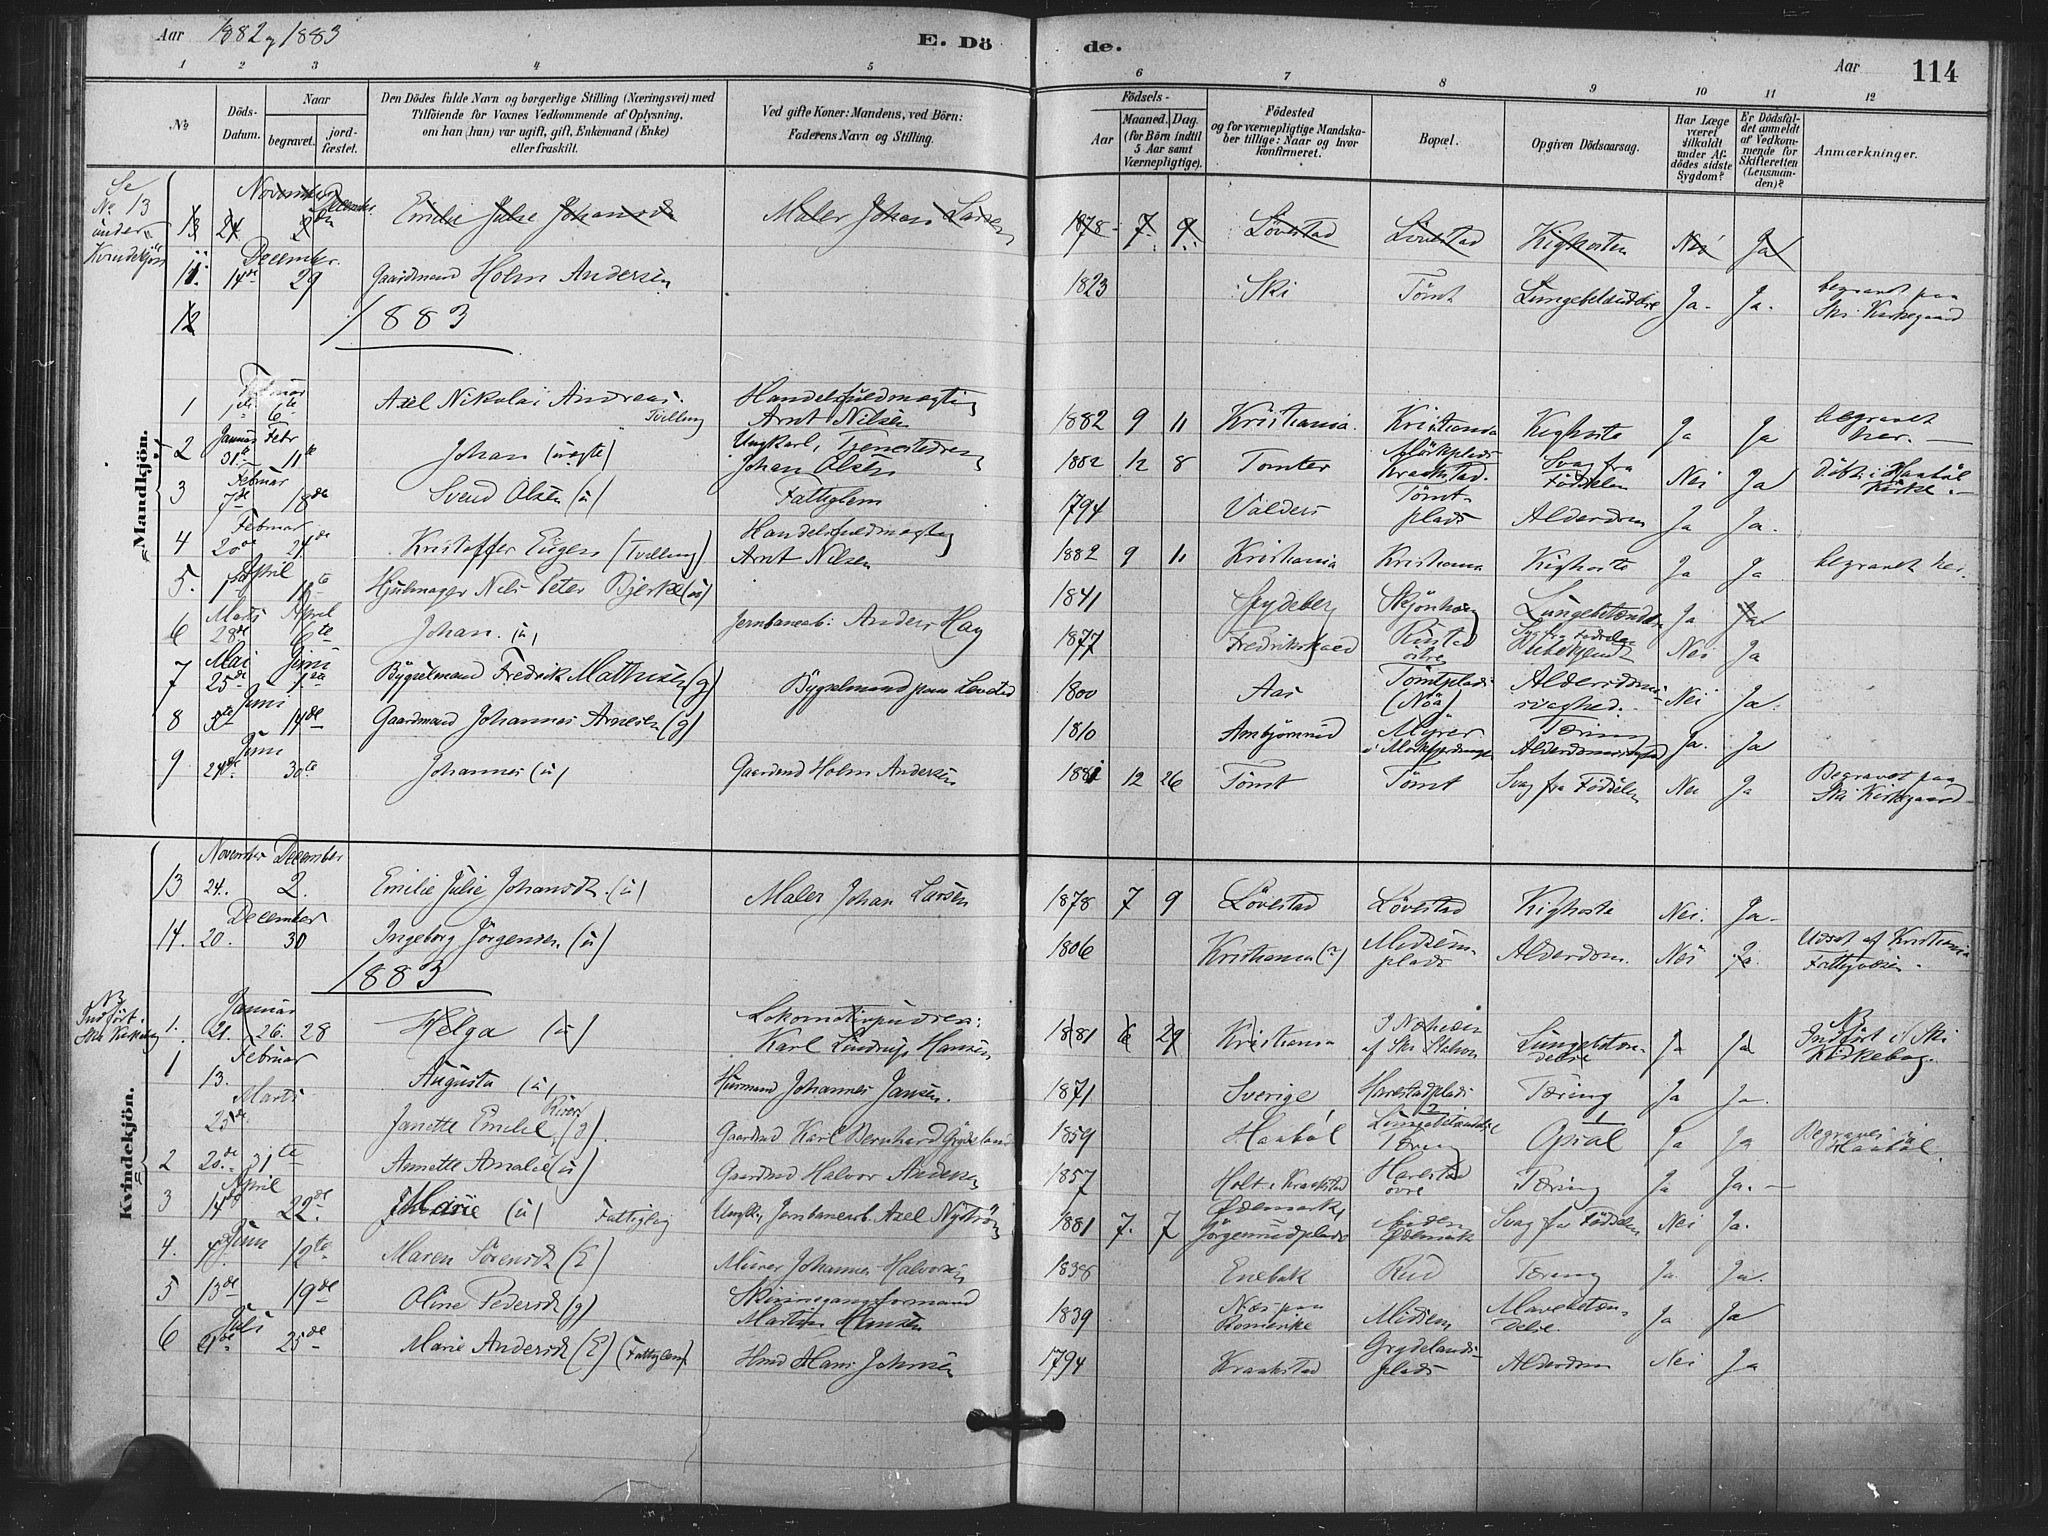 Aar 1882 og 1883
E. Dö de.
Aar 114
1 2 3 4 5 6 7 8 9 10 11 12
No.
Döds-Datum.
Naar
begravet.
jord-fæstet.
Den Dödes fulde Navn og borgerlige Stilling (Næringsvei) med
Tilföiende for Voxnes Vedkommende af Oplysning,
om han (hun) var ugift, gift, Enkemand (Enke)
eller fraskilt.
Ved gifte Koner: Mandens, ved Börn:
Faderens Navn og Stilling.
Födsels-
Aar
Maaned. Dag.
(for Börn indtil
5 Aar samt
Værnepligtige).
Födested
og for værnepligtige Mandska-
ber tillige: Naar og hvor
konfirmeret.
Bopæl.
Opgiven Dödsaarsag.
Har Læge
været
tilkaldt
under Af-
dödes sidste
Sygdom?
Er Dödsfal-
det anmeldt
af Vedkom-
mende for
Skifteretten
(Lensman-
den)?
Anmærkninger.
Se No. 13 under Kvindekjön
"Mandkjön."
November December
13 24 2 Emilie Julie Johansdt Maler Johan Larsen 1878 7 9 Lövestad Lövestad Kighosten Nei Ja
December
11 14de 29 Gaardmand Holm Andersen 1823 Ski Tömt Lungebetændelse Ja. Ja. begravet paa Ski Kirkegaard
12
1883
Februar
1 1ste 6te Axel Nikolai Andreas. Tvilling Handelsfuldmægtig Arnt Nilsen 1882 9 11 Kristiania. Kristiania Kighoste Ja Ja begravet her.
Januar Febr
2 31te 11te Johan (uægte) Ungkarl, Johan Olsen 1882 12 8 Tomter Mörkplads Kraakstad. Svag fra Födselen Nei Ja döbt i Haaböl Kirke.
Februar
3 7de 18de Svend Olsen (u) Fattiglem 1794 Valders Tömt-plads Alderdom Ja Ja.
Februar
4 20de 24de Kristoffer Eugen (Tvilling) Handelsfuldmægtig Arnt Nilsen 1882 9 11 Kristiania Kristiania Kighoste Ja Ja begravet her.
April
5. Hjulmager Nils Peter Bjerke (u) 1841 Spydeberg Skjönhaug Lungebetændelse Ja Ja
Marts April
6 28de 6te Johan. (u) Jernbanearb: Anders Hag 1877 Fredrikshald Rustad övre Svag fra Födselen Ubekjendt Nei Ja
Mai Juni
7 25de 1ste Bygselmand Fredrik Mathisen (g) Bygselmand paa 1800 Aas Tömtplads (Nöa) Alderdomssvaghed. Nei Ja.
Juni
8 5te 14de Gaardmand Johannes Arnesen (g) 1810 Ambjörnrud Myrer Tæring Alderdomssvaghed Ja. Ja
Juni
9 24de 30te Johannes (u) Gaardmd Holm Andersen 1881 12 26 Tömt Tömt Svag fra Födselen Nei Ja Begravet paa Ski Kirkegaard
"Kvindekjön."
November December
13 24. 2. Emilie Julie Johansdt. (u) Maler Johan Larsen 1878 7 9 Lövestad Lövestad Kighoste Nei. Ja.
December
14. 20. 30 Ingeborg Jörgensen (u) 1806 Kristiania (?) Midsem plads Alderdom. Nei Ja. Udsat af Kristiania Fattigvæsen.
1883
NB Indfört i Ski Kirkebog
Januar
1. 21. 26. 28 Helga (u) Lokomotivpudser: Karl Lindrup Hansen 1881 6 29 Kristiania I Nærheden af Ski Station Lungebetændelse Ja Ja NB Indfört i Ski Kirkebog.
Februar
1 13. Augusta (u) Husmand Johannes Jansen. 1871 Sverige Harestadplads Tæring Ja Ja.
Marts
23de Janette Emelie (g) Gaardmd Karl Bernhard Grydeland 1859 Haaböl Lungebetændelse Tæring Opsal Ja Ja Begraves i Haaböl.
2 20de 31te Annette Amalie (u) Gaardmd Halvor Andersen 1857 Holt i Kraakstad Harestad övre Tæring Ja Ja.
April
3 14de 22de. Marie (u) Fattiglig Ungk., Jernbanearb. Axel Nyström 1881 7. 7 Ödemark, Jörgenrudplads Ödemark Svag fra Födselen Nei Ja.
Juni
4. 4de 12te Maren Sörensdt (E) Murer Johannes Halvorsen 1838 Enebak Rud Tæring Ja. Ja.
5 13de 19de Oline Pedersdt (g) Skinnegangsformand Martin Hansen 1839 Næs paa Romerike Midsem Mavebetændelse. Ja Ja
Juli
6 25de Marie Andersdt (E) (Fattiglem) Hmd Hans Johnsen 1794 Kraakstad Grydelandsplads Alderdom Nei Ja